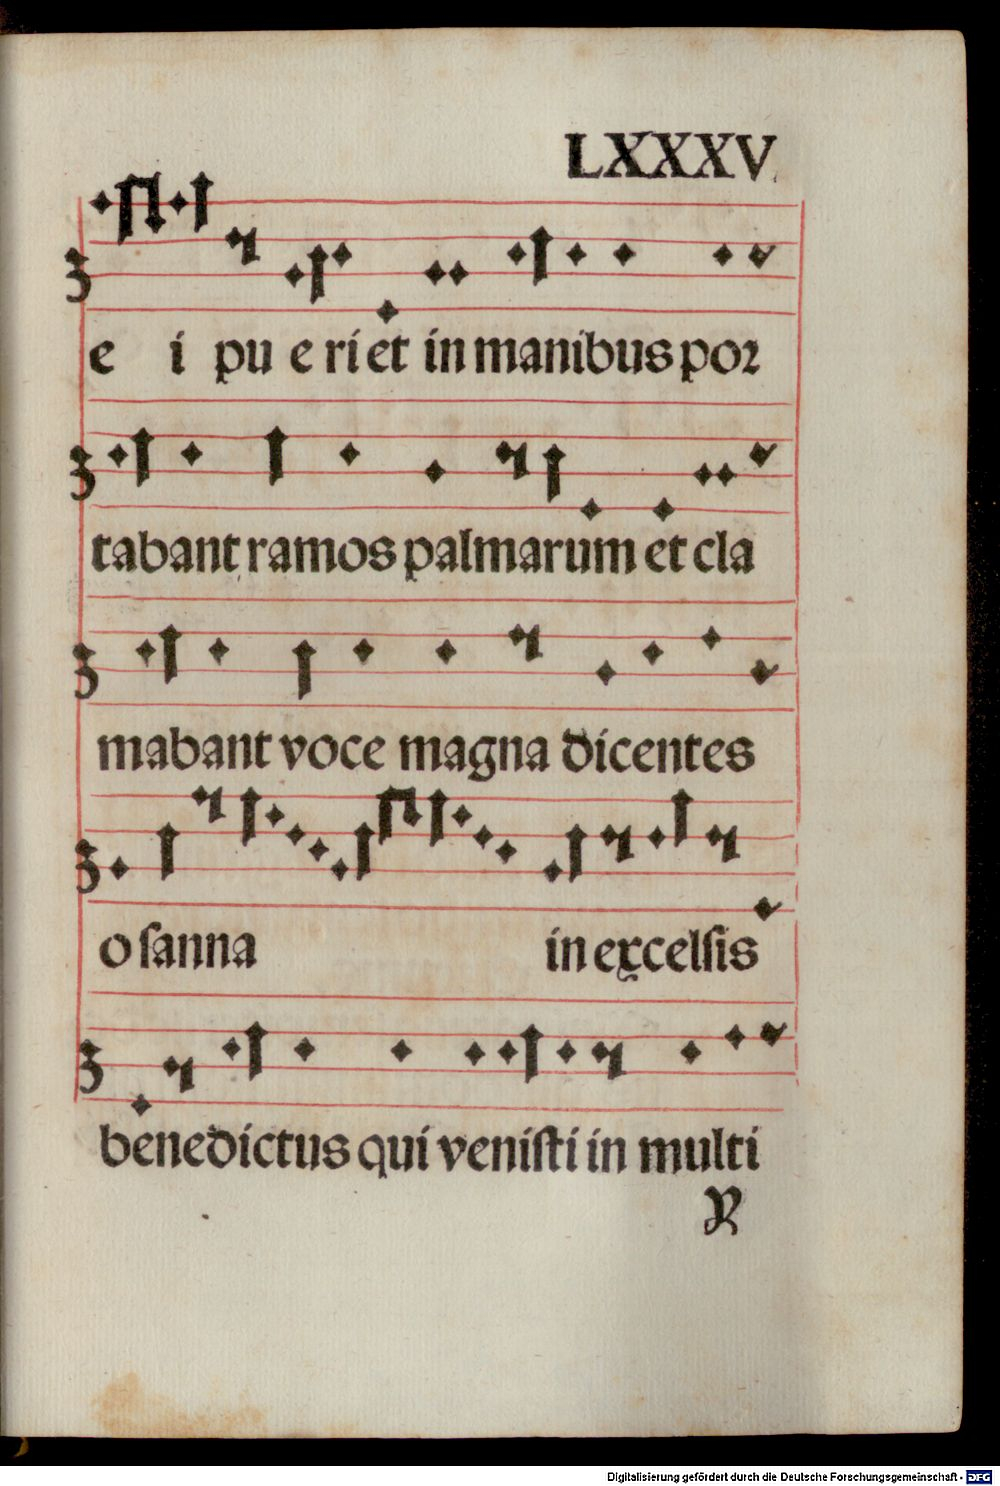 LXXXV
e i pu e ri et in manibus poꝛ
tabant ramos palmarum et cla
mabant voce magna dicentes
o ſanna in excelſis
benedictus qui veniſti in multi
Digitalisierung gefördert durch die Deutsche Forschungsgemeinschaft - DFG